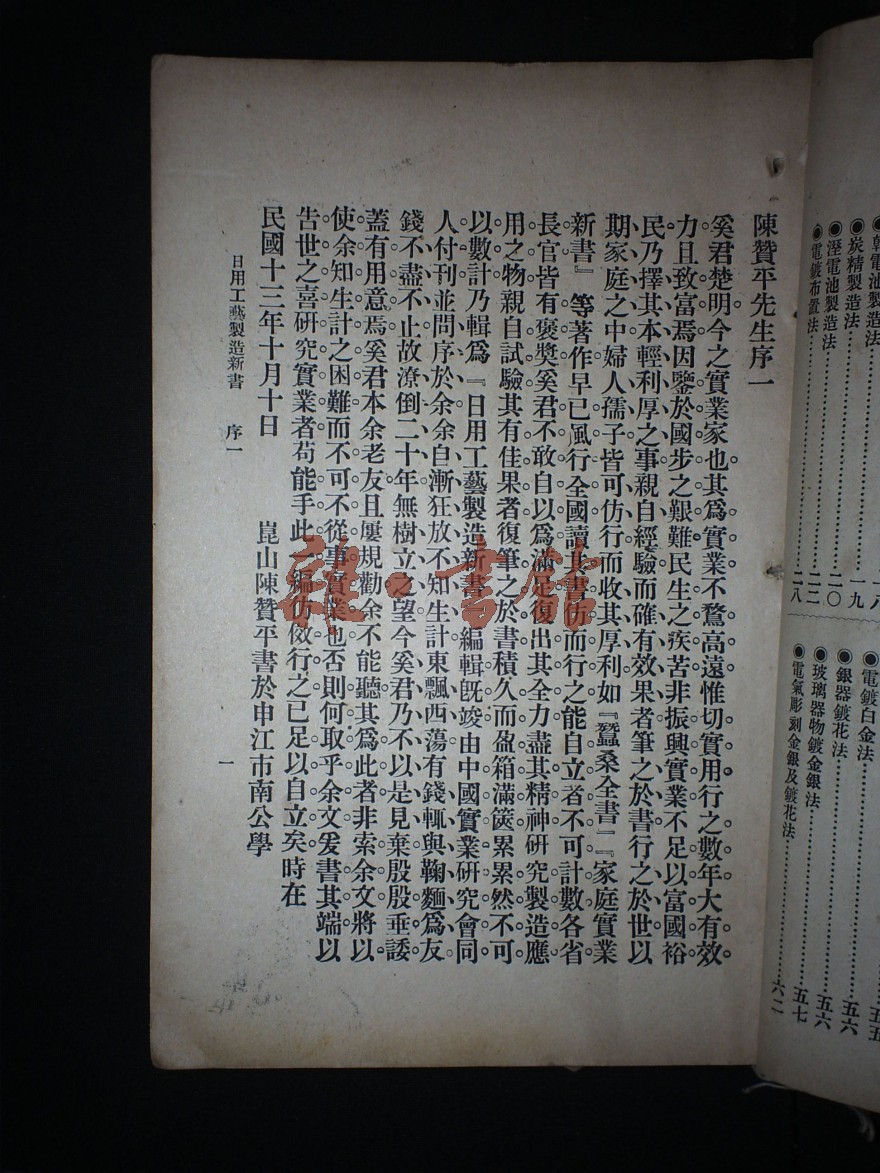 乾電池製造法……一八
◉炭精製造法……一九
◉溼電池製造法……二〇
◉電鍍布置法……二八
◉電鍍白金法……五五
◉銀器鍍花法……五六
◉玻璃器物鍍金銀法……五六
◉電氣彫刻金銀及鍍花法……五七
六二
陳贊平先生序一
奚君楚明今之實業家也其爲實業不騖高遠惟切實用行之數年大有效
力且致富焉因鑒於國步之艱難民生之疾苦非振興實業不足以富國裕
民乃擇其本輕利厚之事親自經驗而確有效果者筆之於書行之於世以
期家庭之中婦人孺子皆可仿行而收其厚利如『蠶桑全書』『家庭實業
新書』等著作早已風行全國讀其書仿而行之能自立者不可計數各省
長官皆有褒獎奚君不敢自以爲滿足復出其全力盡其精神硏究製造應
用之物親自試驗其有佳果者復筆之於書積久而盈箱滿篋累累然不可
以數計乃輯爲『日用工藝製造新書』編輯旣竣由中國實業硏究會同
人付刊並問序於余余自漸狂放不知生計東飄西蕩有錢輒與鞠麵爲友
錢不盡不止故潦倒二十年無樹立之望今奚君乃不以是見棄殷殷垂諉
蓋有用意焉奚君本余老友且屢規勸余不能聽其爲此者非索余文將以
使余知生計之困難而不可不從事實業也否則何取乎余文爰書其端以
吿世之喜硏究實業者苟能手此一編仿倣行之已足以自立矣時在
民國十三年十月十日　崑山陳贊平書於申江市南公學
日用工藝製造新書　序一　一
雜書館